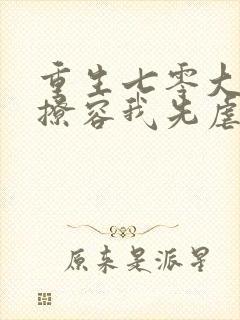 重生七零大
撩容我先虐
原来是派星